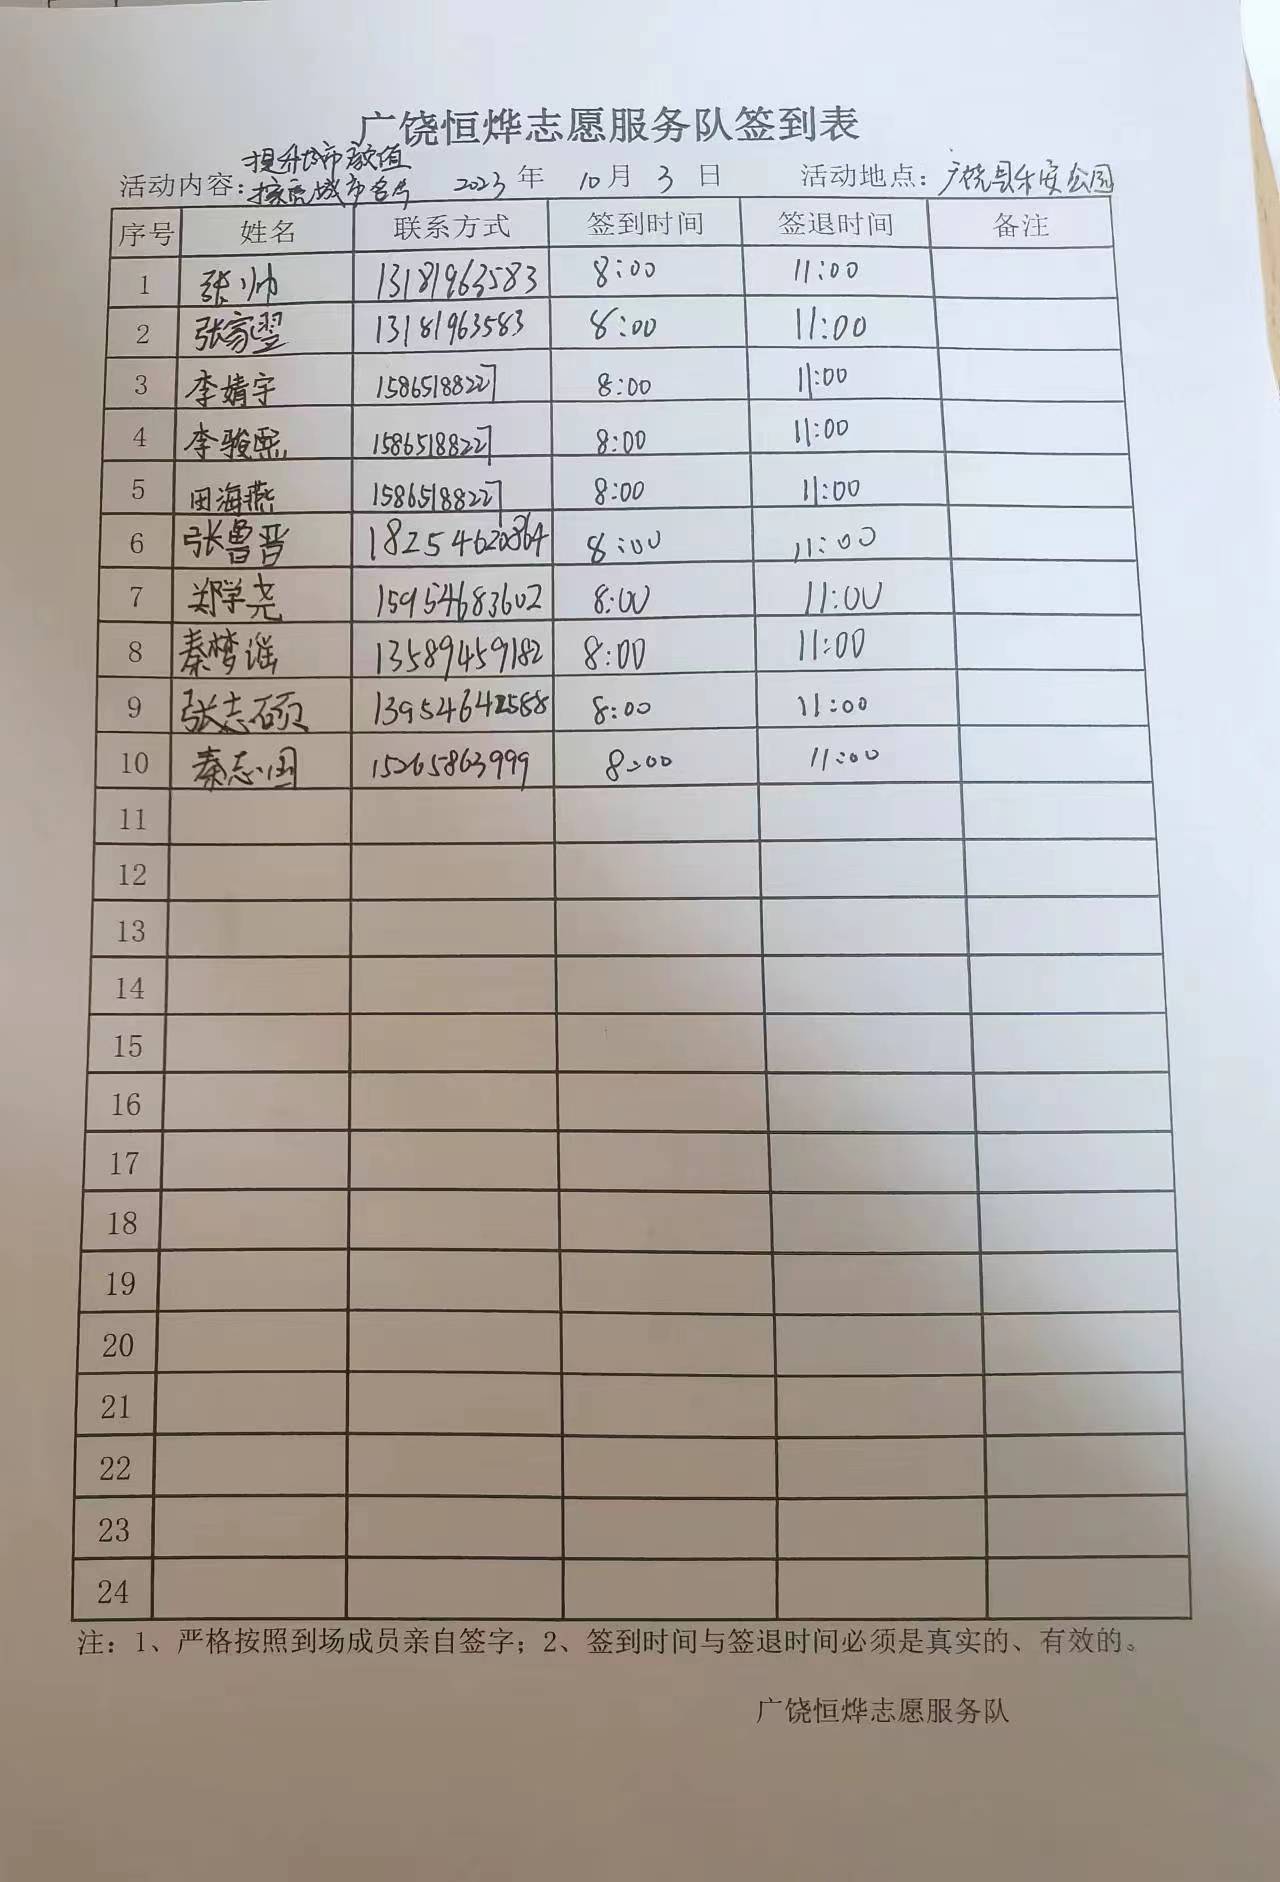 广饶恒烨志愿服务队签到表
提升城市颜值
活动内容：擦亮城市名片 2023年 10月 3日 活动地点：广饶县乐安公园
序号 姓名 联系方式 签到时间 签退时间 备注
1 张帅 13181963583 8:00 11:00
2 张家翌 13181963583 8:00 11:00
3 李婧宇 15865188227 8:00 11:00
4 李骏熙 15865188227 8:00 11:00
5 田海燕 15865188227 8:00 11:00
6 张鲁晋 18254620864 8:00 11:00
7 郑学尧 15954683602 8:00 11:00
8 秦梦谣 13589459182 8:00 11:00
9 张志硕 13954642588 8:00 11:00
10 秦志国 15265863999 8:00 11:00
11
12
13
14
15
16
17
18
19
20
21
22
23
24
注：1、严格按照到场成员亲自签字；2、签到时间与签退时间必须是真实的、有效的。
广饶恒烨志愿服务队